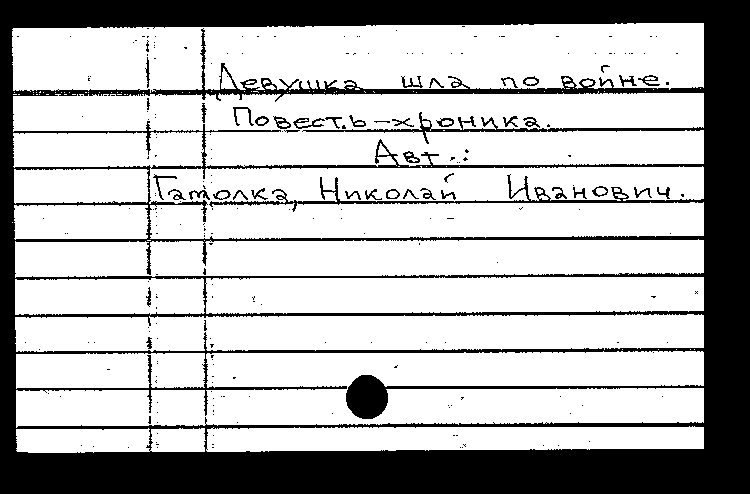 Девушка шла по войне.
Повесть-хроника.
Авт.:
Гамолка, Николай Иванович.